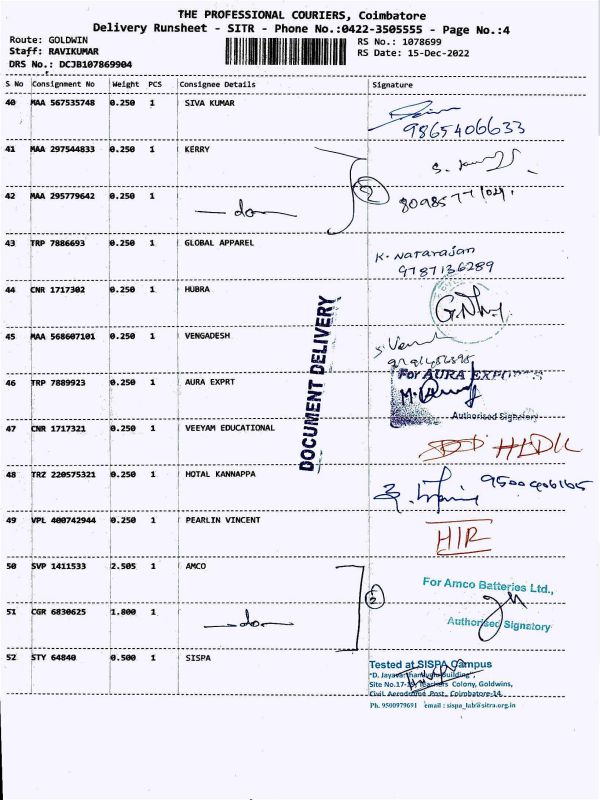 THE PROFESSIONAL COURIERS, Coimbatore
Delivery Runsheet - SITR - Phone No.:0422-3505555 - Page No.:4
Route: GOLDWIN
RS No.: 1078699
Staff: RAVIKUMAR
RS Date: 15-Dec-2022
DRS No.: DCJB107869904
S No Consignment No Weight PCS Consignee Details Signature
40 MAA 567535748 0.250 1 SIVA KUMAR
9865406633
41 MAA 297544833 0.250 1 KERRY
42 MAA 295779642 0.250 1
do 2
43 TRP 7886693 0.250 1 GLOBAL APPAREL
K. Natarajan
9787136289
44 CNR 1717302 0.250 1 HUBRA
45 MAA 568607101 0.250 1 VENGADESH
46 TRP 7889923 0.250 1 AURA EXPRT
For AURA EXPORTS
Authorised Signatory
DOCUMENT DELIVERY
47 CNR 1717321 0.250 1 VEEYAM EDUCATIONAL
48 TRZ 220575321 0.250 1 HOTAL KANNAPPA
49 VPL 400742944 0.250 1 PEARLIN VINCENT
HIR
50 SVP 1411533 2.505 1 AMCO
For Amco Batteries Ltd.,
51 CGR 6830625 1.800 1
do 2
Authorised Signatory
52 STY 64840 0.500 1 SISPA
Tested at SISPA Campus
Colony, Goldwins,
Civil Aerodrome Post, Coimbatore-14.
Ph. 9500979691 email : sispa_lab@sitra.org.in